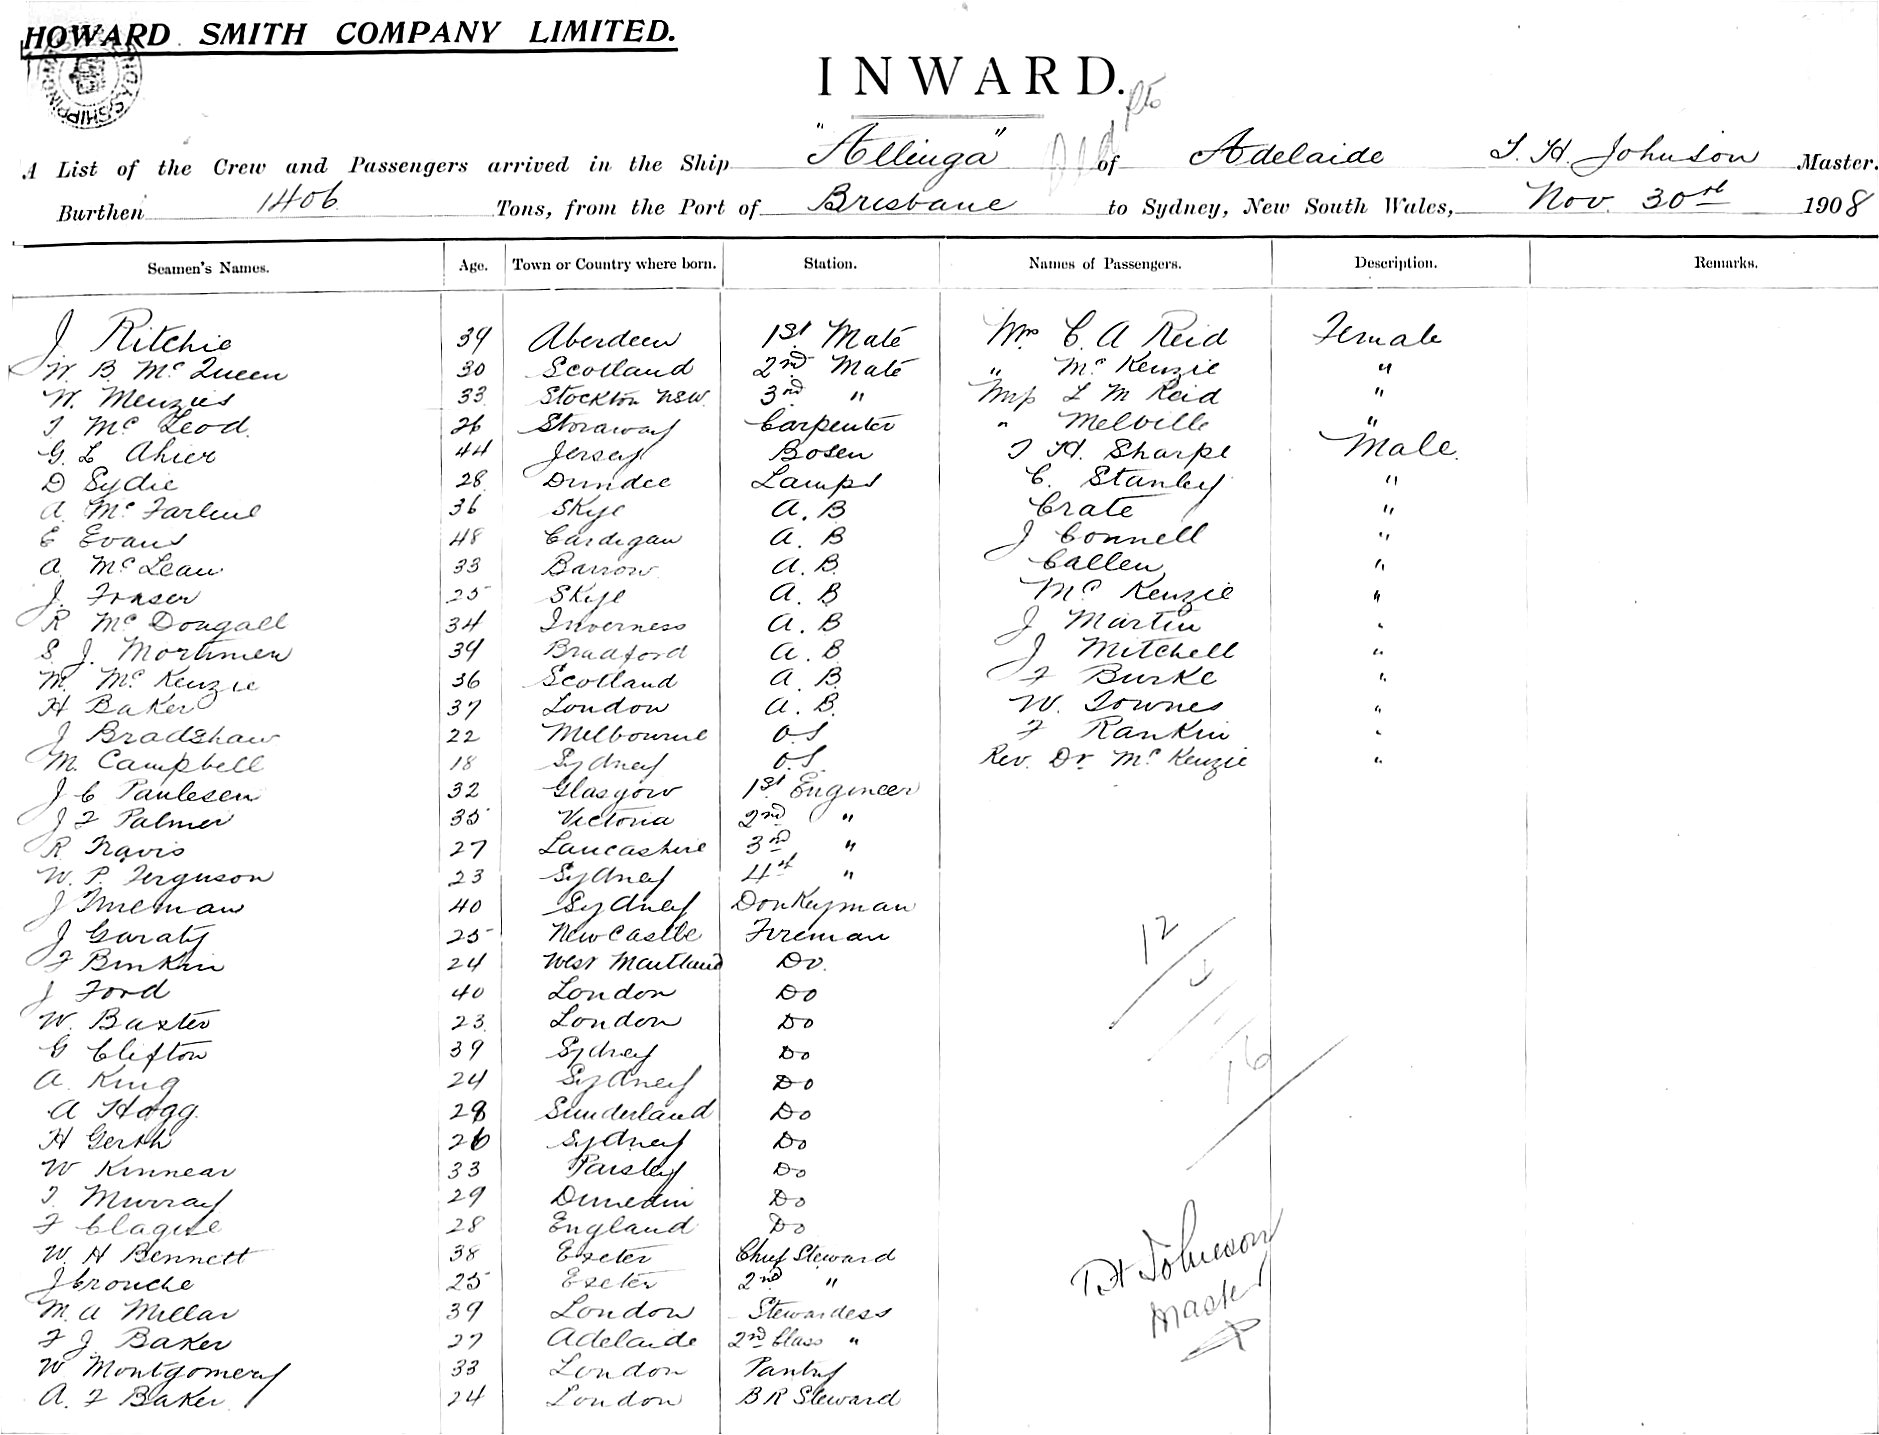 HOWARD SMITH COMPANY LIMITED.
INWARD.
pto
A List of the Crew and Passengers arrived in the Ship "Allinga" of Adelaide T. H. Johnson Master.
Burthen 1406 Tons, from the Port of Brisbane to Sydney, New South Wales, Nov. 30th 1908
Seamen's Names. Age. Town or Country where born. Station. Names of Passengers. Description. Remarks.
J Ritchie 39 Aberdeen 1st Mate Mrs C. A Reid Female
W. B Mc Queen 30 Scotland 2nd Mate " Mc Kenzie "
W. Menzies 33 Stockton NSW. 3rd " Miss L M Reid "
T Mc Leod. 26 Storaway Carpenter " Melville "
G. L Ahier 44 Jersey Bosen T H. Sharpe Male.
D Sydie 28 Dundee Lamps C. Stanley "
A. Mc Farlene 36 Skye A. B Crate "
E Evans 48 Cardigan A. B J Connell "
A. Mc Lean 33 Barrow A. B. Callen "
J. Fraser 25 Skye A. B Mc Kenzie "
R Mc Dougall 34 Inverness A. B J Martin "
S. J. Mortimer 39 Bradford A. B. J Mitchell "
M. Mc Kenzie 36 Scotland A. B. F Burke "
H Baker 37 London A. B. W. Townes "
J Bradshaw 22 Melbourne O.S F Rankin "
M. Campbell 18 Sydney O.S. Rev. Dr. Mc Kenzie "
J C Paulesen 32 Glasgow 1st Engineer
J F Palmer 35 Victoria 2nd "
R Travis 27 Lancashire 3rd "
W. P. Ferguson 23 Sydney 4th "
J 40 Sydney Donkeyman
J Garaty 25 NewCastle Fireman
F Binkin 24 West Maitland Do.
J Ford 40 London Do
W. Baxter 23 London Do
G Clifton 39 Sydney Do
A. King 24 Sydney Do
A Hogg. 28 Sunderland Do
H Gerth 26 Sydney Do
W Kinnear 33 Paisley Do
T. Murray 29 Dunedin Do
F Clague 28 England Do
W. H Bennett 38 Exeter Chief Steward
J Crouche 25 Exeter 2nd "
M. A Millar 39 London Stewardess
F J. Baker 27 Adelaide 2nd Class "
W Montgomery 33 London Pantry
A. F Baker 24 London B R Steward
12
16
TH Johnson
Master